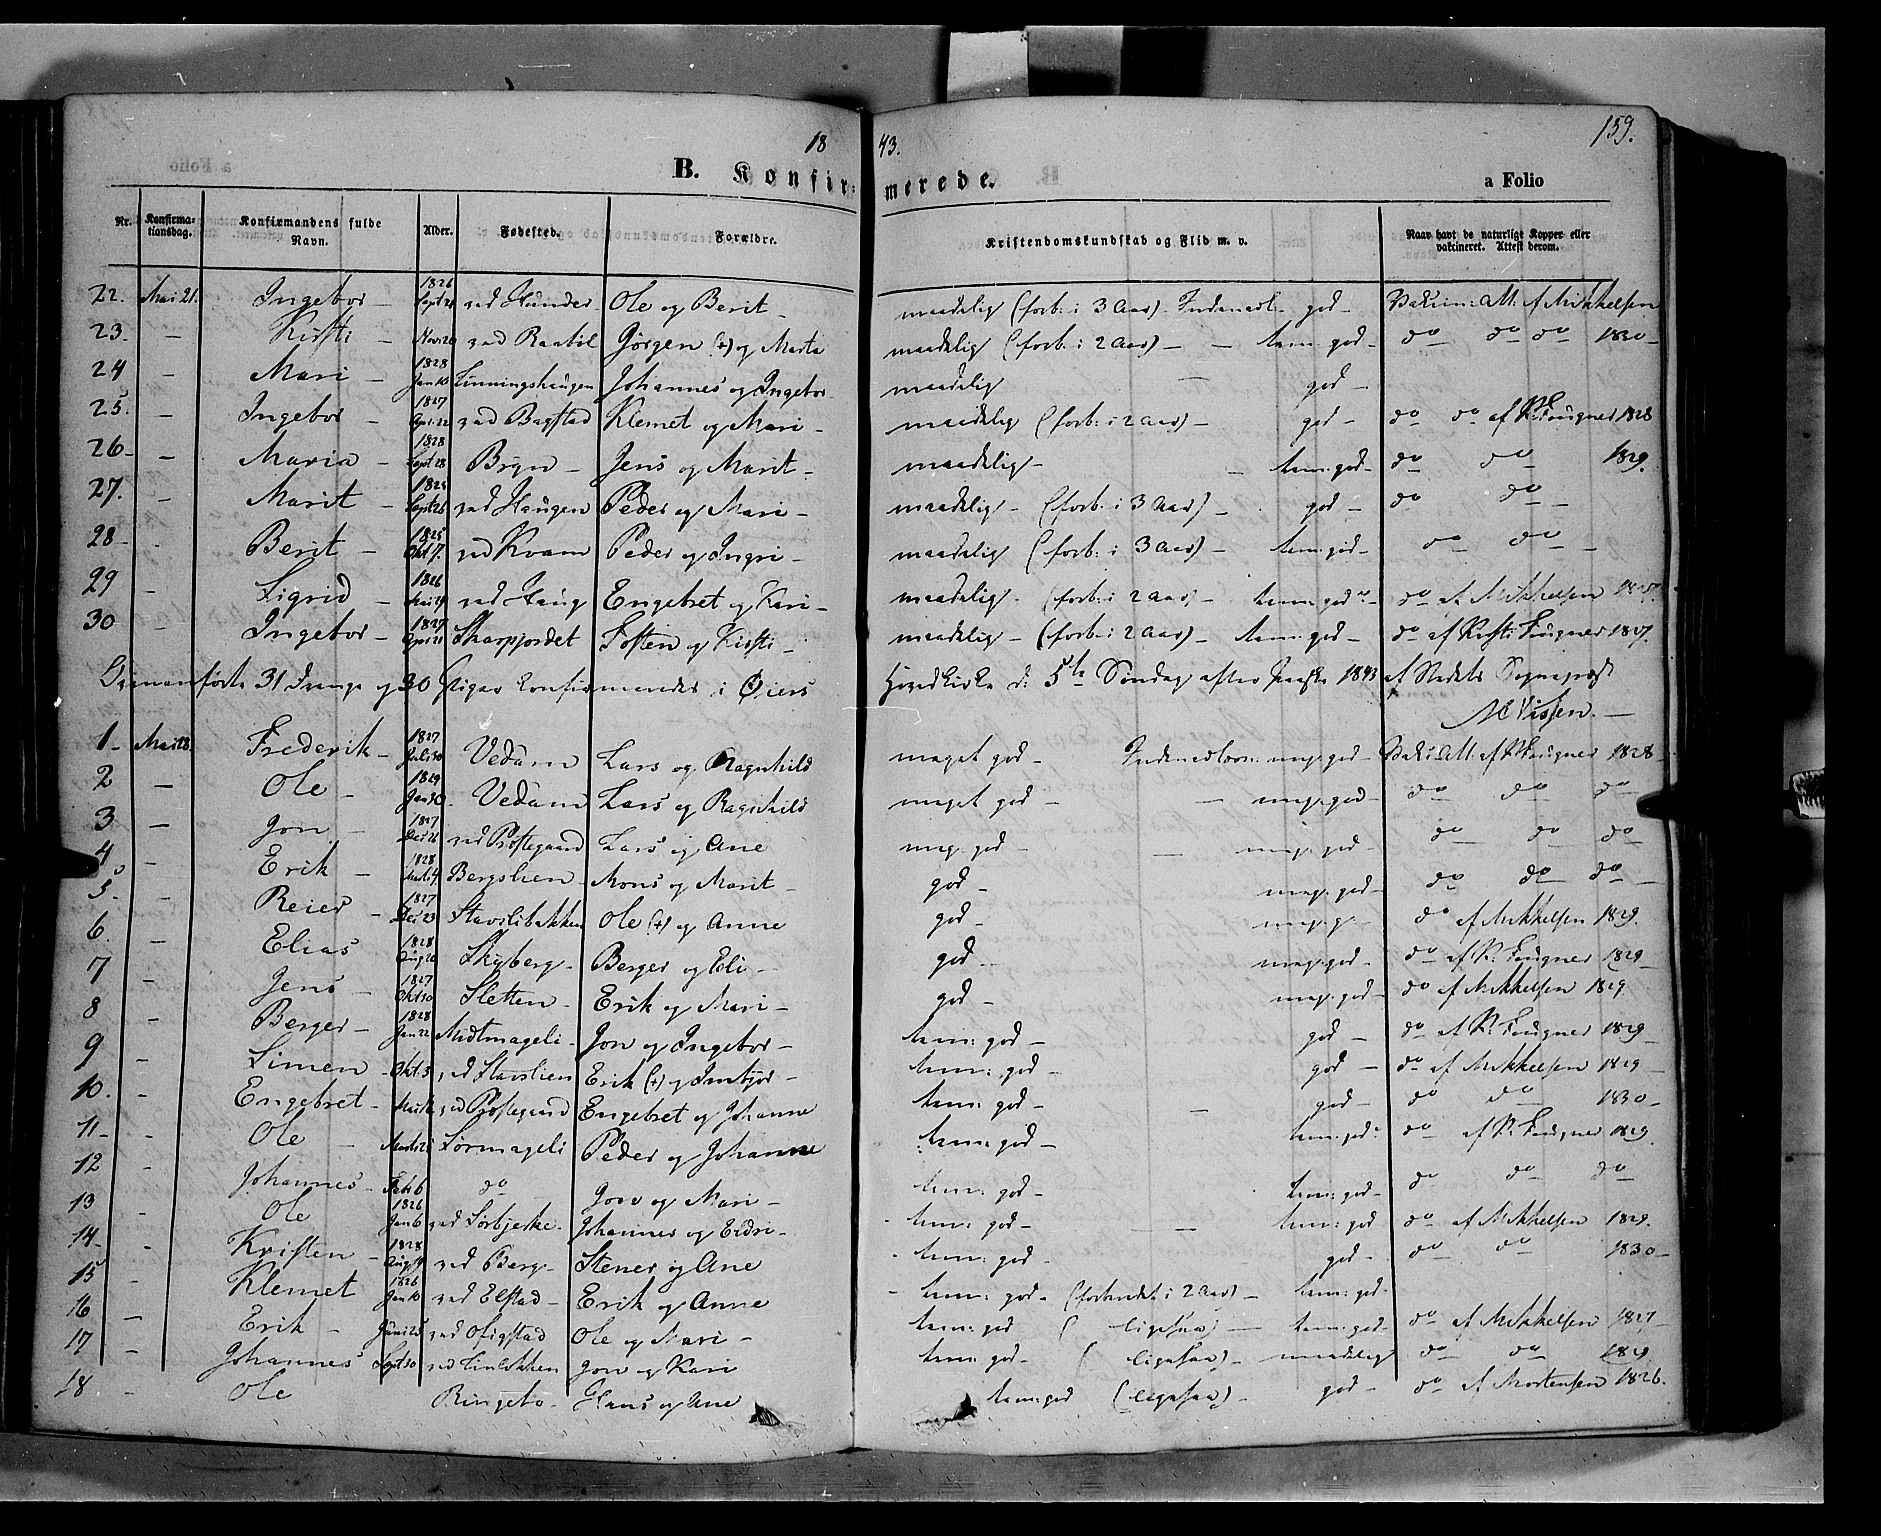 18 43. 159.
B. Konfirmerede. a Folio
Nr. Konfirmationsdag. Konfirmandens fulde Navn. Alder. Fødested. Forældre. Kristendomskundskab og Flid m. v. Naar havt de naturlige Kopper eller vaktineret. Attest derom.
22. Mai 21. Ingebor 1826 Sept 21 ved Hunder Ole og Berit maadelig (forb: i 3 Aar) god Att: af Mikkelsen
23. Kisti Nov 20 Jørgen (+) og Marta maadelig (forb: i 2 Aar) tem: god do do do 1830
24 Mari 1828 Jan 10 Linningshaugen Johannes og Ingebor maadelig god
25. Ingebor 1827 Apr: 22 ved Bagstad Klemet og Mari maadelig (forb: i 2 Aar) god do do af Fougner 1828
26 Maria 1828 Sept 28 Bryn Jens og Marit maadelig tem: god do do 1829
27. Marit 1825 Sept 26 ved Haugen Peder og Mari maadelig (forb: i 3 Aar) god do do
28 Berit 1825 Okt 7. ved Kvam Peder og Ingri maadelig (forb: i 3 Aar) tem: god do do
29 Sigrid 1826 Mai ved Haug Engebret og Kari maadelig (forb: i 2 Aar) tem: god do af Mikkelsen
30 Ingebor 1827 Apr: 21 Skarpjordet Tosten og Kisti maadelig (forb: i 2 Aar) tem: god do af Fougner 1827.
31 Drenge og 30 Piger konfirmerede i Øiers Hovedkirke d: 5te Søndag efter Paaske 1843 af Stedets Sognepræst
1 Mai 28 Frederik 1827 Juli 30 Vedum Lars og Ragnhild meget god meg: god Att: af Fougner 1828
2 Ole 1829 Jan 30 Vedum Lars og Ragnhild meget god meg: god do do do
3 Jon 1827 Dec 26 ved Præstegaard Lars og Ane meg: god meg: god do do do
4 Erik 1828 Bergslien Mons og Marit god meg: god do do do
5. Reier 1827 Dec 23 Stavslibakken Ole (+) og Anne god meg: g: do af Mikkelsen 1829.
6. Elias 1828 Aug 20 Skyberg Berger og Eli god meg: god do af Fougner 1829
7 Jens 1827 Okt 30 Sletten Erik og Mari god meg: god do af Mikkelsen 1829
8 Berger 1828 Jan 22 Midtmageli Jon og Ingebor tem: god god do af Fougner 1829
9 Simen Okt: 5 ved Stavslien Erik (+) og Imbjør tem: god god do af Mikkelsen 1829
10. Engebret ved Præstegaard Engebret og Johanne tem: god god do do 1830
11. Ole Marts 21 Sørmageli Peder og Johanne tem: god tem: god do af Fougner 1829.
12 Johannes Febr 6 do Jon og Mari tem: god tem: god do do do
13 Ole 1826 Jan 6 ved Sørbjerke Johannes og Eldri tem: god tem: god do af Mikkelsen 1829.
14 Kristen 1828 Aug: ved Berg Stener og Ane tem: god god do do 1830
15 Klemet 1826 Jan 10 ved Elstad Erik og Anne tem: god (forberedet i 2 Aar) tem: god
16 Erik Juni 25 ved Ofigstad Ole og Mari tem: god (ligesaa) tem: god do af Mikkelsen 1827
17 Johannes Sept 30 Jon og Kari tem: god (ligesaa) maadelig do do 1829
18 Ole Ringebo Hans og Ane tem: god (ligesaa) god do af Mortensen 1826.